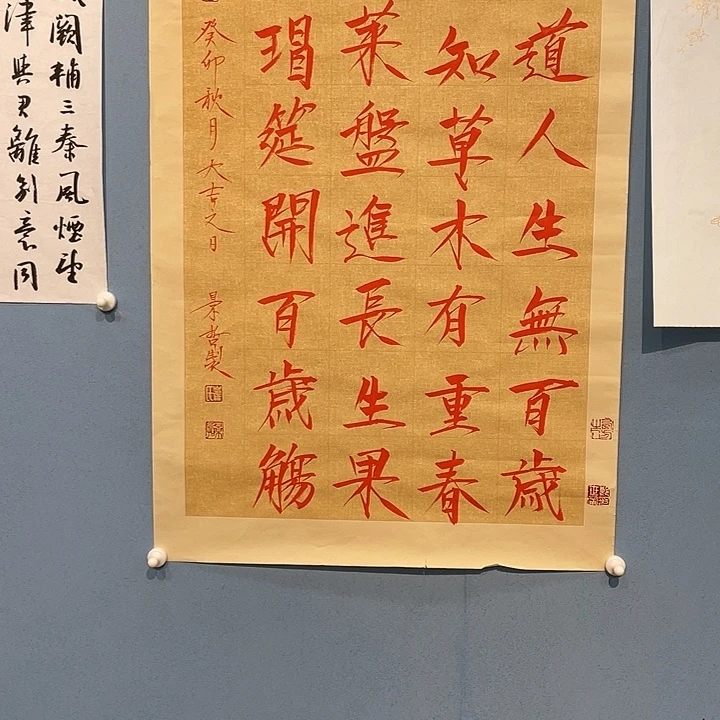 道人生無百歲
知草木有重春
萊盤進長生果
瑁筵開百歲觴
癸卯秋月大吉之日
製
闕輔三秦風煙望
津與君離別意同